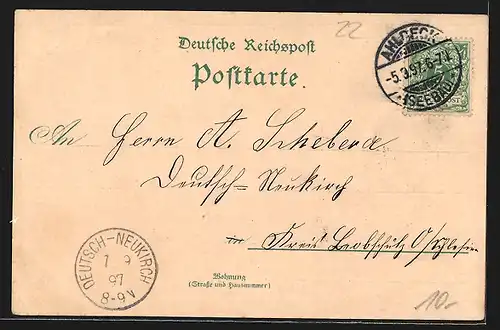 22
Deutsche Reichspost
Postkarte.
AHLBECK
-5.3.97.6-7N
(SEEBAD)
An Herrn A. Schebera
Deutsch-Neukirch
in Kreis Leobschütz O/Schlesien
DEUTSCH-NEUKIRCH
7 9
97
8-9V
Wohnung
(Straße und Hausnummer)
10.-